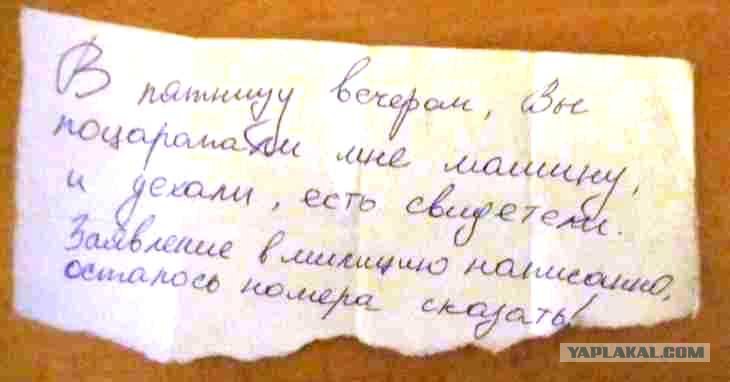 В пятницу вечером, Вы
поцарапали мне машину,
и уехали, есть свидетели.
Заявление в милицию написанно,
осталось номера сказать!
YAPLAKAL.COM